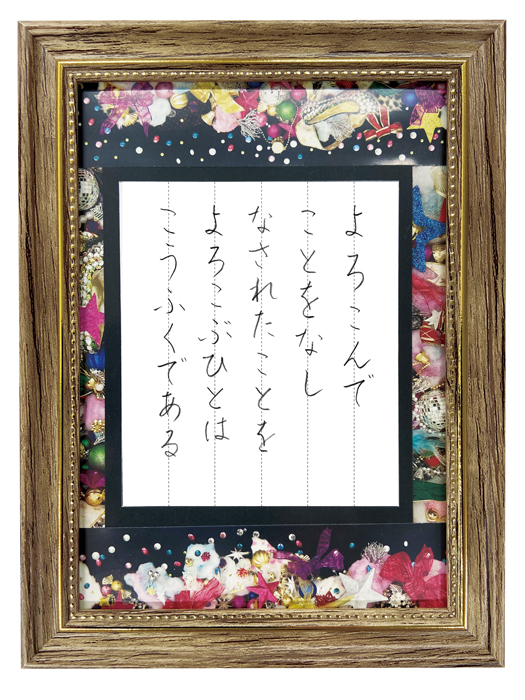 よろこんで
ことをなし
なされたことを
よろこぶひとは
こうふくである